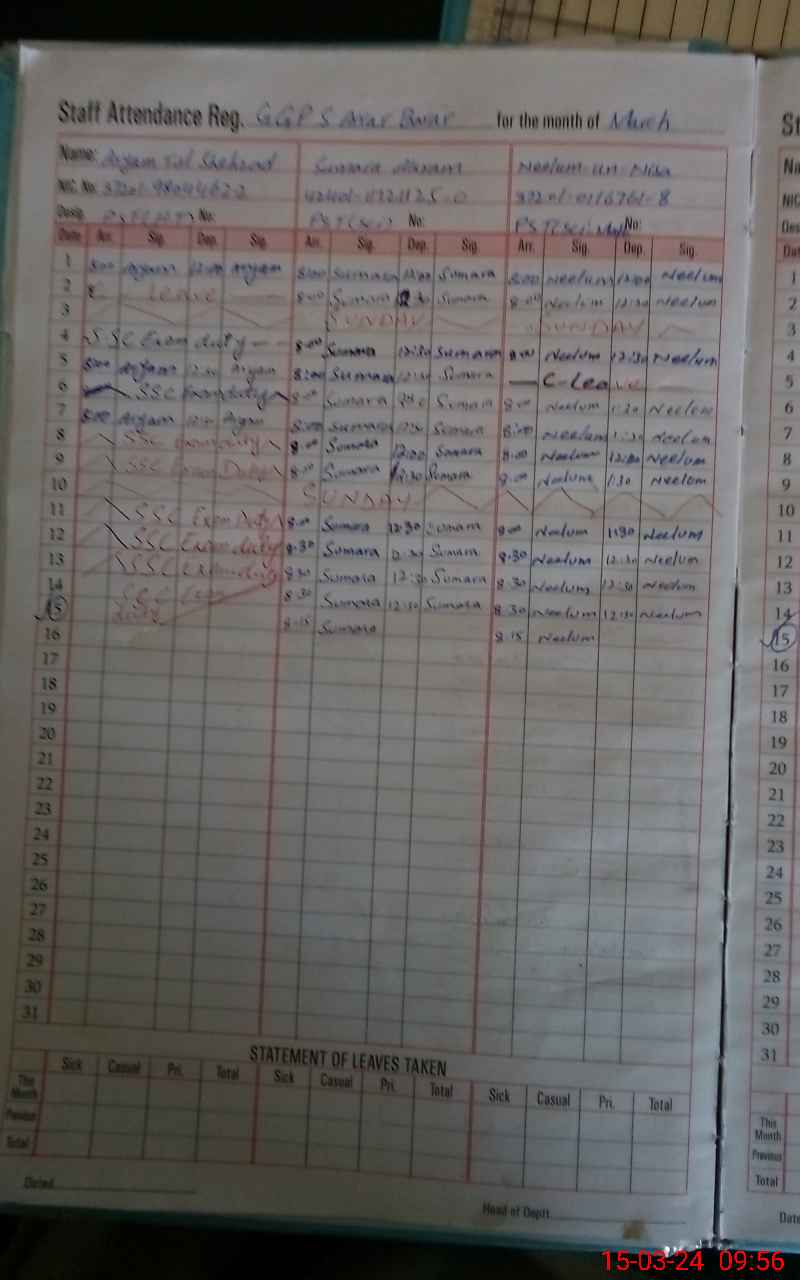 Staff Attendance Reg. GGPS Arar Bwar for the month of March
Name: Anjam Tal Shehzad Sumara Akram Neelum un Nisa
NIC. No.
Desig. No: PST(Sci) No: PST(Sci-Math) No:
Date Arr. Sig. Dep. Sig. Arr. Sig. Dep. Sig. Arr. Sig. Dep. Sig.
1 8:00 Anjam 12:00 Anjam 8:00 Sumara 12:00 Sumara 8:00 Neelum 12:00 Neelum
2 Leave 8:00 Sumara 12:30 Sumara 8:00 Neelum 12:30 Neelum
3 SUNDAY SUNDAY
4 SSC Exam duty 8:00 Sumara 12:30 Sumara 8:00 Neelum 12:30 Neelum
5 8:00 Anjam Anjam 8:00 Sumara Sumara C-Leave
6 SSC Exam duty 8:00 Sumara Sumara 8:00 Neelum 1:30 Neelum
7 8:00 Anjam Anjam 8:00 Sumara 12:30 Sumara 8:00 Neelum 1:30 Neelum
8 SSC Exam duty 8:00 Sumara 12:00 Sumara 8:00 Neelum 12:00 Neelum
9 SSC Exam Duty 8:00 Sumara 12:30 Sumara 8:00 Neelum 1:30 Neelum
10 SUNDAY
11 SSC Exam Duty 8:00 Sumara 12:30 Sumara 8:00 Neelum 1:30 Neelum
12 SSC Exam duty 8:30 Sumara 12:30 Sumara 8:30 Neelum 12:30 Neelum
13 SSC Exam duty 8:30 Sumara 12:30 Sumara 8:30 Neelum 12:30 Neelum
14 SSC Exam duty 8:30 Sumara 12:30 Sumara 8:30 Neelum 12:30 Neelum
15 8:15 Sumara 8:15 Neelum
16
17
18
19
20
21
22
23
24
25
26
27
28
29
30
31
STATEMENT OF LEAVES TAKEN
Sick Casual Pri. Total Sick Casual Pri. Total Sick Casual Pri. Total
This Month
Previous
Total
Dated
Head of Deptt.
St
Na
NIC
Des
Dat
1
2
3
4
5
6
7
8
9
10
11
12
13
14
15
16
17
18
19
20
21
22
23
24
25
26
27
28
29
30
31
This Month
Previous
Total
Date
15-03-24 09:56